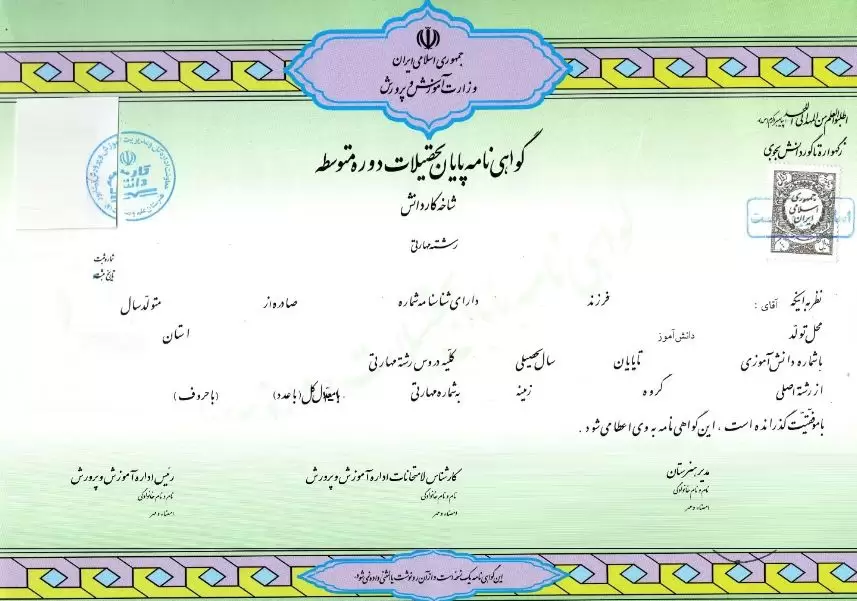 جمهوری اسلامی ایران
وزارت آموزش و پرورش
اطلبوا العلم من المهد الی اللحد
ز گهواره تا گور دانش بجوی
گواهی نامه پایان تحصیلات دوره متوسطه
شاخه کاردانش
رشته مهارتی
جمهوری
اسلامی
ایران
شماره ثبت
تاریخ ثبت
نظر به اینکه آقای : فرزند دارای شناسنامه شماره صادره از متولد سال
محل تولد دانش آموز استان
با شماره دانش آموزی تا پایان سال تحصیلی کلیه دروس رشته مهارتی
از رشته اصلی گروه زمینه به شماره مهارتی با معدل کل (با عدد) (با حروف)
با موفقیت گذرانده است ، این گواهی نامه به وی اعطا می شود .
مدیر هنرستان
نام و نام خانوادگی
امضاء و مهر
کارشناس امتحانات اداره آموزش و پرورش
نام و نام خانوادگی
امضاء و مهر
رئیس اداره آموزش و پرورش
نام و نام خانوادگی
امضاء و مهر
این گواهی نامه یک نسخه است و از آن رونوشت یا المثنی داده نمی شود.